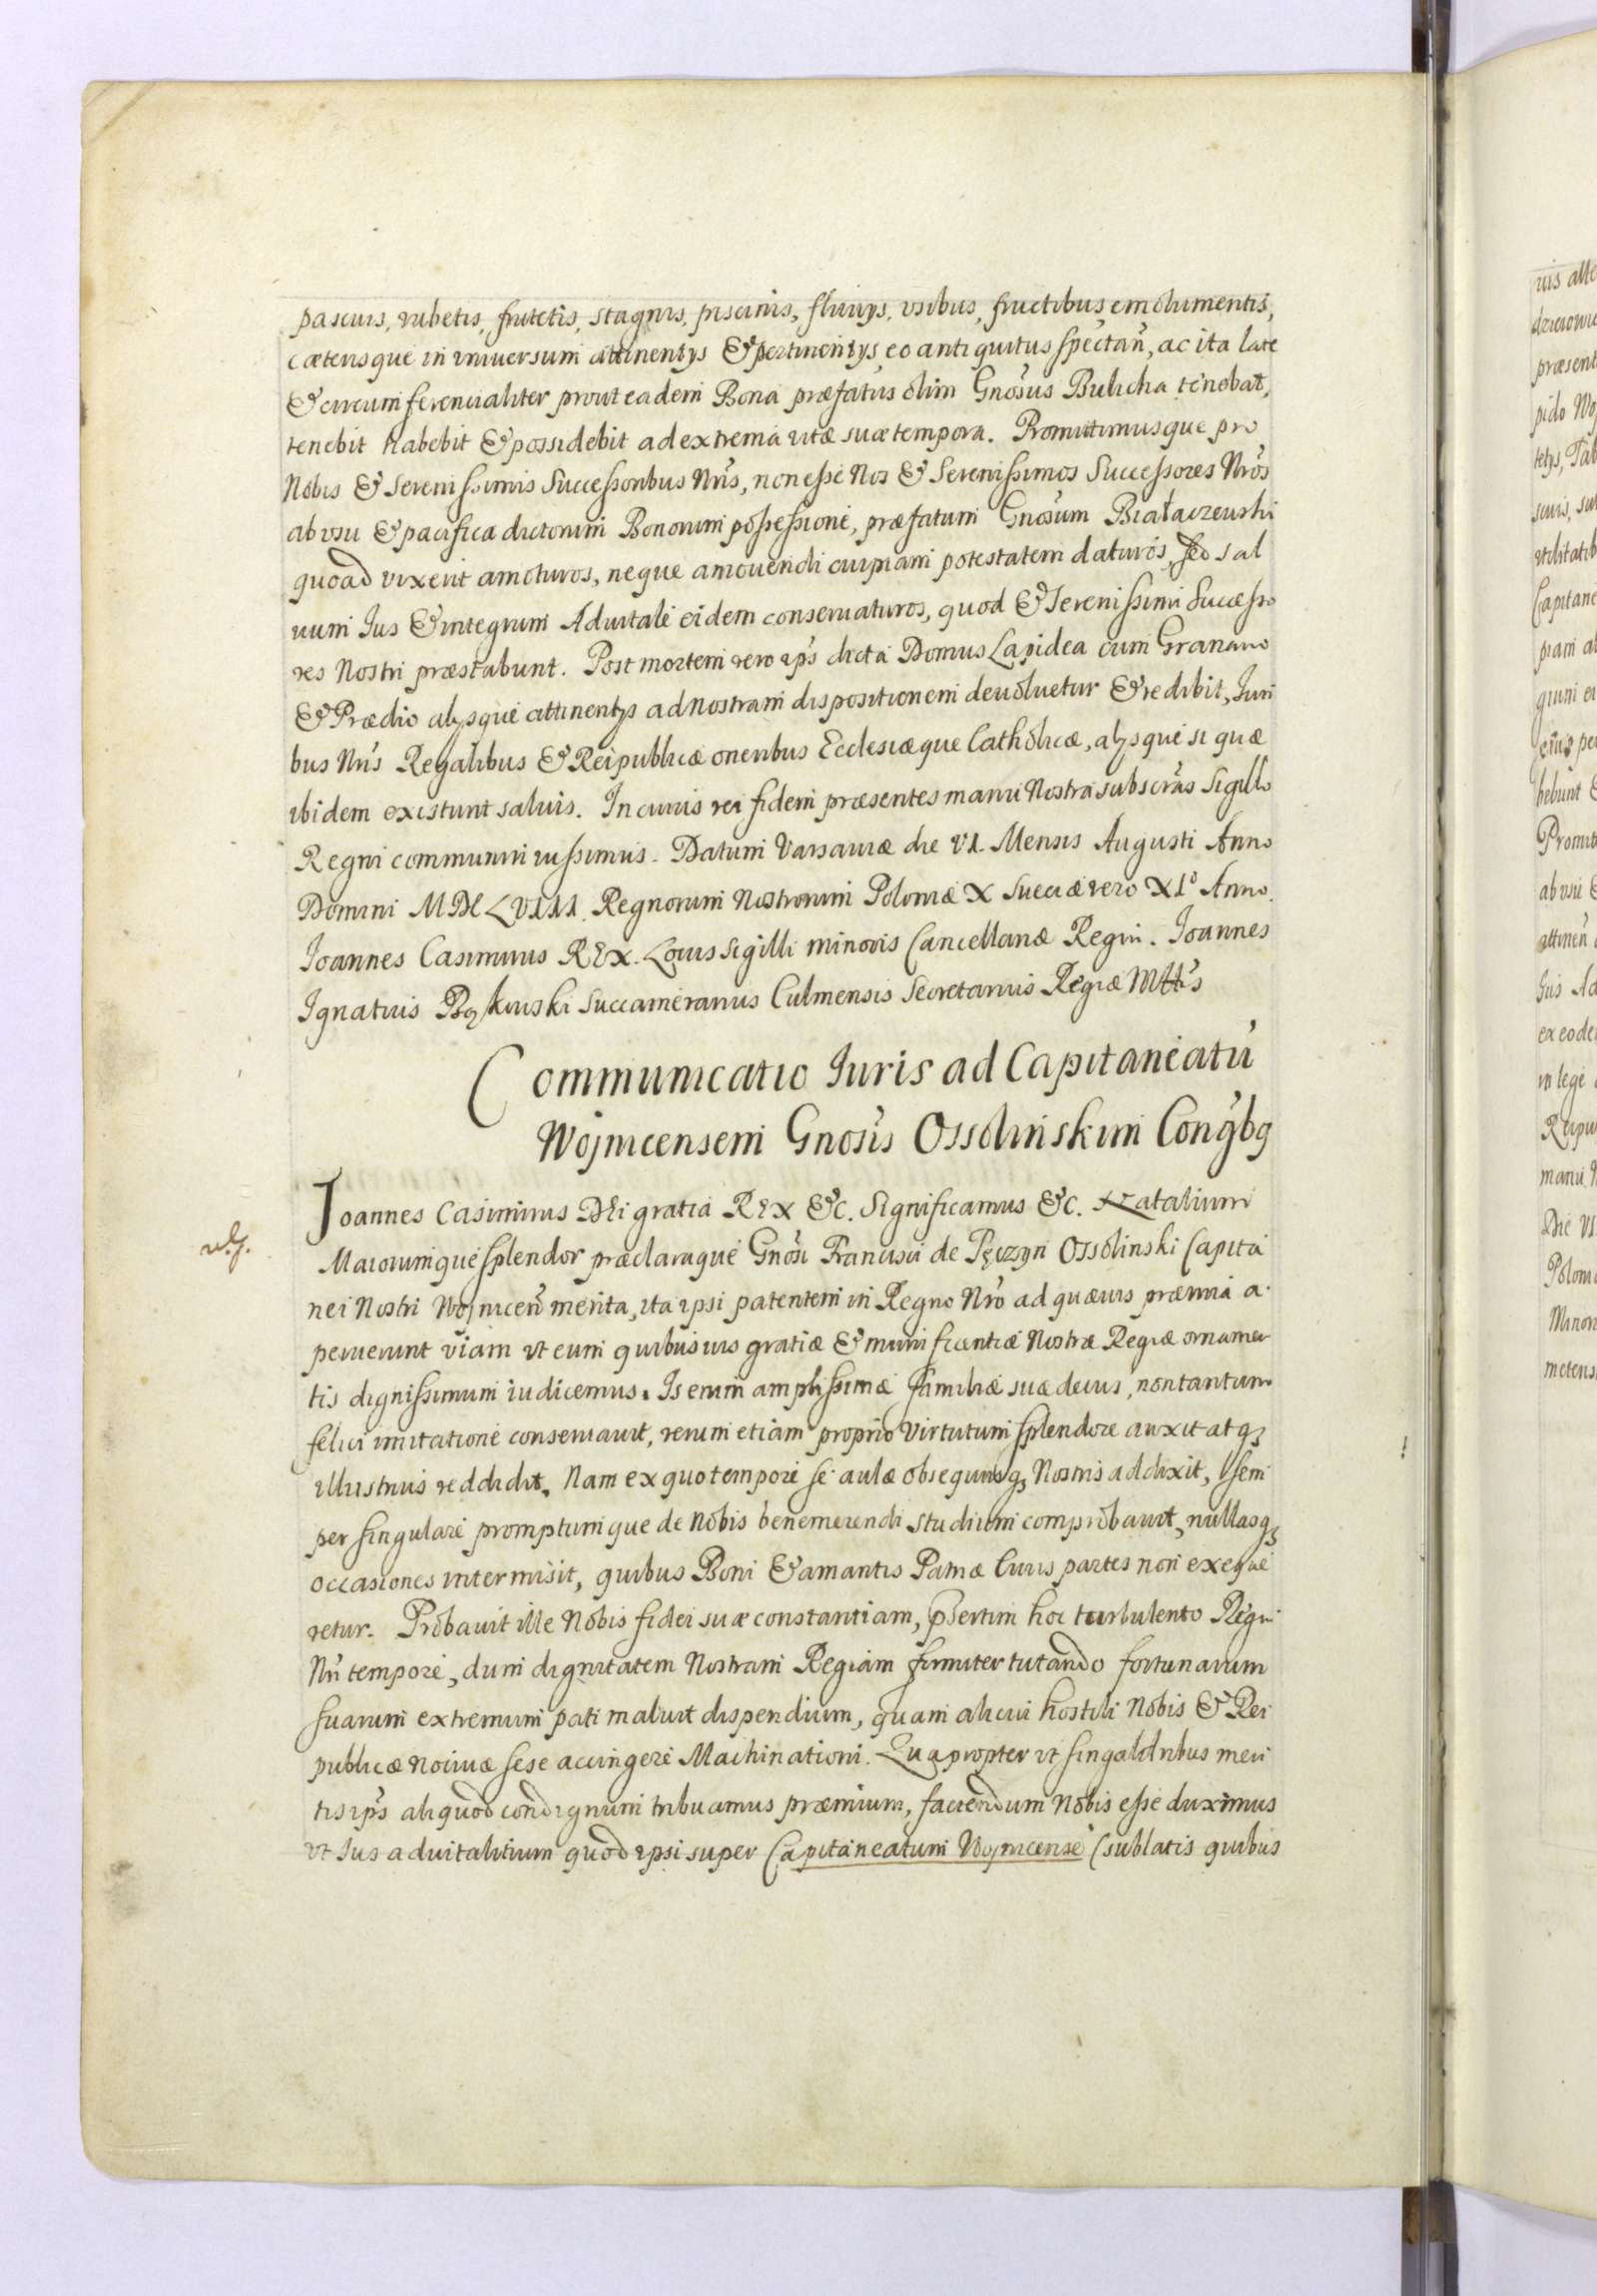 pascuis, rubetis, frutetis, stagnis, piscinis, fluvijs, usibus, fructibus emolumentis,
cæterisque in universum attinentijs & pertinentijs eo antiquitus spectan̄, ac ita late
& circumferencialiter prout eadem Bona præfatus olim Gnōsus Bulicha tenebat,
tenebit habebit & possidebit ad extrema vitæ suæ tempora. Promittimusque pro
Nobis & Serenissimis Successoribus Nrīs, non esse Nos & Serenissimos Successores Nrōs
ab usu & pacifica dictorum Bonorum possessione, præfatum Gnōsum Białaczewski
quoad vixerit amoturos, neque amovendi cuipiam potestatem daturos, sed sal
vum Ius & integrum Advitale eidem conservaturos, quod & Serenissimi Successo
res Nostri præstabunt. Post mortem vero ip̄s dicta Domus Lapidea cum Granario
& Prædio alijsque attinentijs ad nostram dispositionem devoluetur & redibit, Iuri
bus Nrīs Regalibus & Reipublicæ oneribus Ecclesiæque Catholicæ, alijsque si quæ
ibidem existunt salvis. In cuius rei fidem præsentes manu Nostra subscrās Sigillo
Regni communiri iussimus. Datum Varsaviæ die VI. Mensis Augusti Anno
Domini MDCLVIII. Regnorum Nostrorum Poloniæ X Sueciæ vero XI° Anno.
Ioannes Casimirus REX. Locus Sigilli minoris Cancellariæ Regni. Ioannes
Ignatius Bąkowski Succamerarius Culmensis Secretarius Regiæ Mttīs
Communicatio Iuris ad Capitaneatū
Wojnicensem Gnōsis Ossolinskim Conȳbꝫ
Ioannes Casimirus DEi gratia REX &c. Significamus &c. Natalium
Maiorumque splendor præclaraque Gnōsi Francisci de Tęczyn Ossolinski Capita
nei Nostri Wojnicen̄ merita, ita ipsi patentem in Regno Nrō ad quævis præmia a
peruerunt viam ut eum quibusuis gratiæ & munificentiæ Nostræ Regiæ ornamen
tis dignissimum iudicemus. Is enim amplissimæ familiæ suæ decus, non tantum
felici imitatione conservavit, verum etiam proprio virtutum splendore auxit atqꝫ
illustrius reddidit. Nam ex quo tempore se aulæ obsequijsqꝫ Nostris addixit, sem
per singulare promptumque de Nobis benemerendi studium comprobavit, nullasqꝫ
occasiones intermisit, quibus Boni & amantis Patriæ Civis partes non exeque
retur. Probavit ille Nobis fidei suæ constantiam, p̄sertim hoc turbulento Regni
Nrī tempore, dum dignitatem Nostram Regiam firmiter tutando fortunarum
suarum extremum pati maluit dispendium, quam alicui hostili Nobis & Rei
publicæ nocivæ sese accingere Machinationi. Quapropter ut singularibus meri
tis ip̄s aliquod condignum tribuamus præmium, faciendum Nobis esse duximus
ut Ius advitalitium quod ipsi super Capitaneatum Wojnicense (sublatis quibus